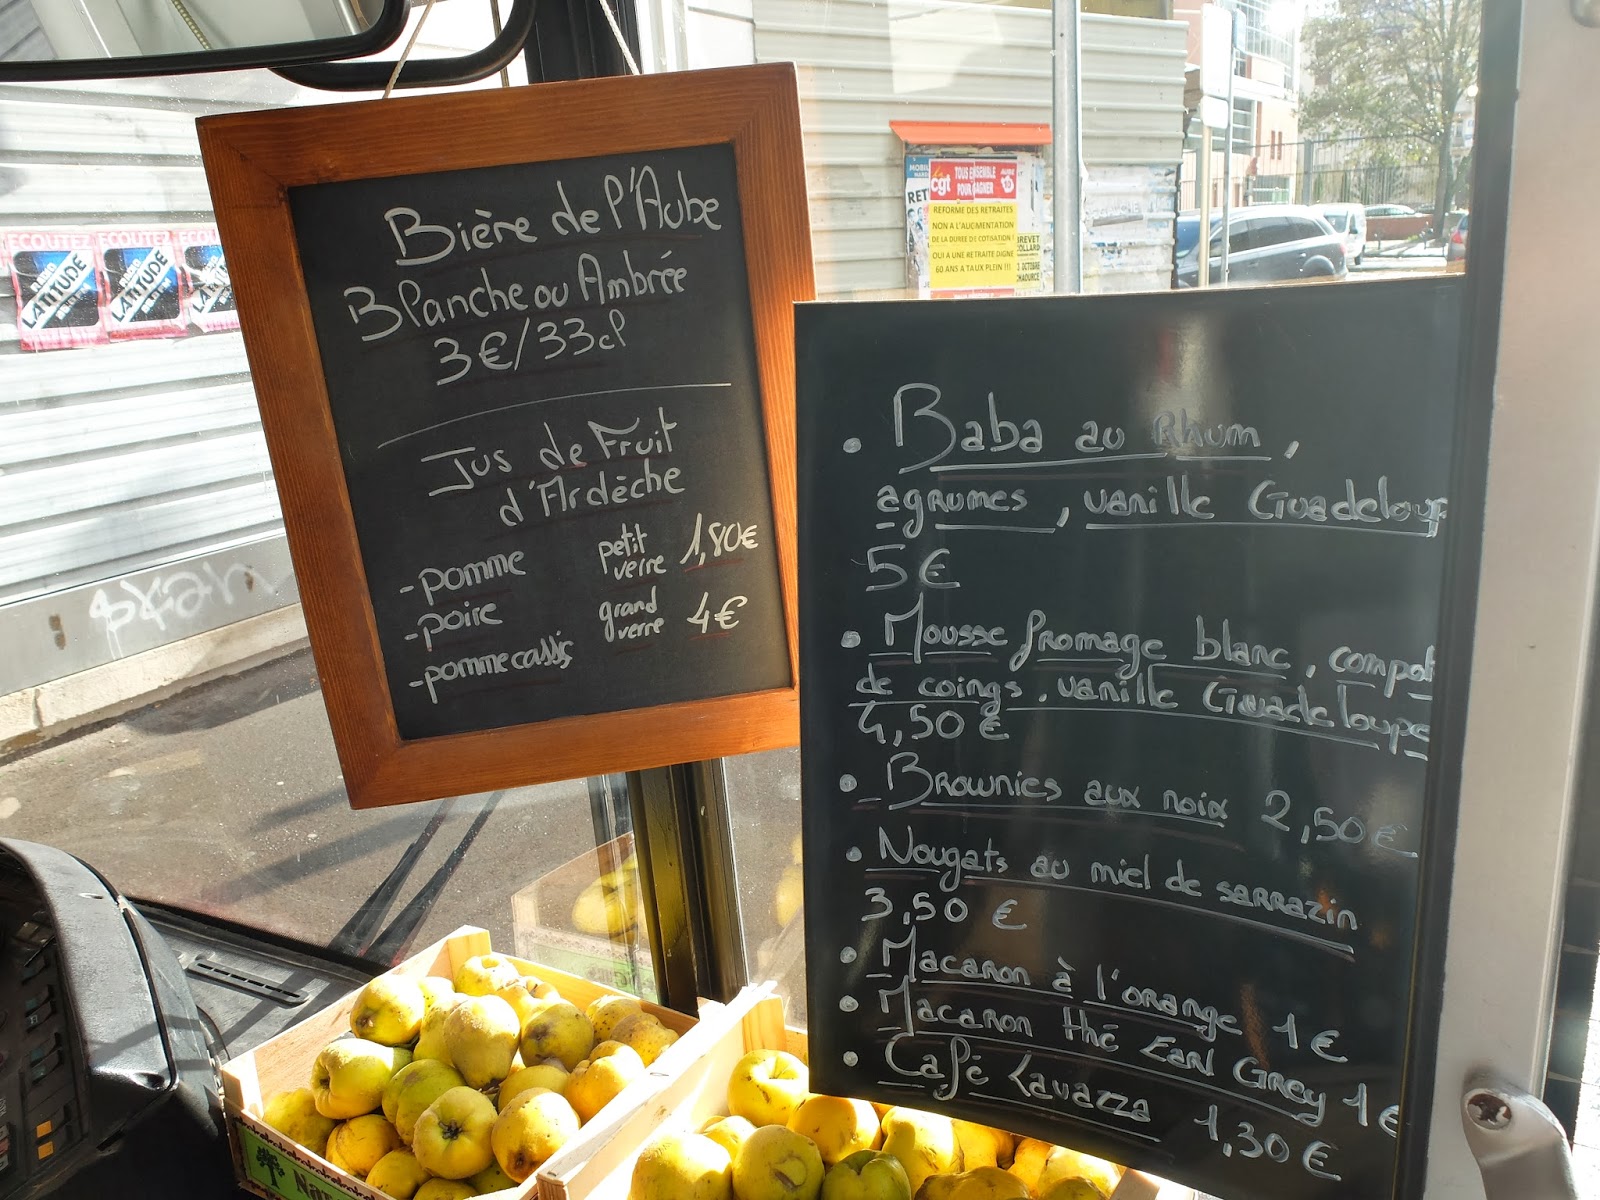 Bière de l'Aube
Blanche ou Ambrée
3€/33cl
Jus de Fruit
d'Ardèche
-pomme
-poire
-pommecassis
petit
verre 1,80€
grand
verre 4€
• Baba au Rhum,
agrumes, vanille Guadeloup
5€
• Mousse fromage blanc, compot
de coings, vanille Guadeloupe
4,50€
• Brownies aux noix 2,50€
• Nougats au miel de sarrazin
3,50 €
• Macaron à l'orange 1€
• Macaron thé Earl Grey 1€
• Café Lavazza 1,30€
ECOUTEZ ECOUTEZ ECOUTEZ
RADIO
LATITUDE
RADIO
LATITUDE
LATITUDE
cgt
TOUS ENSEMBLE
POUR GAGNER
REFORME DES RETRAITES
NON A L'AUGMENTATION
DE LA DUREE DE COTISATION !
OUI A UNE RETRAITE DIGNE
60 ANS A TAUX PLEIN !!!
MOBIL
RET
BREVET
OLLARD
OCTOBRE
CHAOURCE
skan